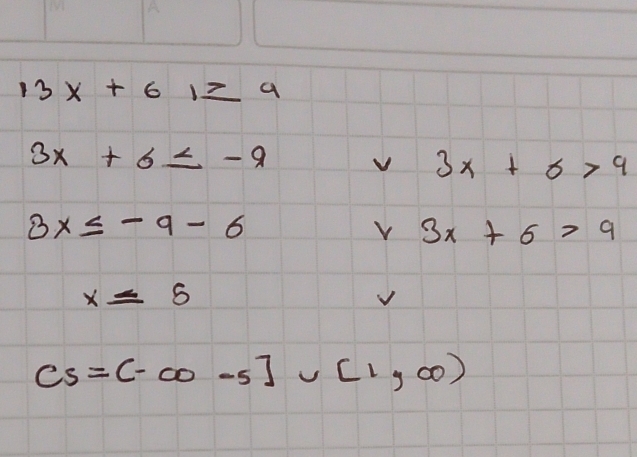 |3x + 6 | ≥ 9
3x + 6 ≤ -9 v 3x + 6 > 9
3x ≤ - 9 - 6 v 3x + 6 > 9
x ≤ 5 v
CS = (- ∞ -5] ∪ [1, ∞)